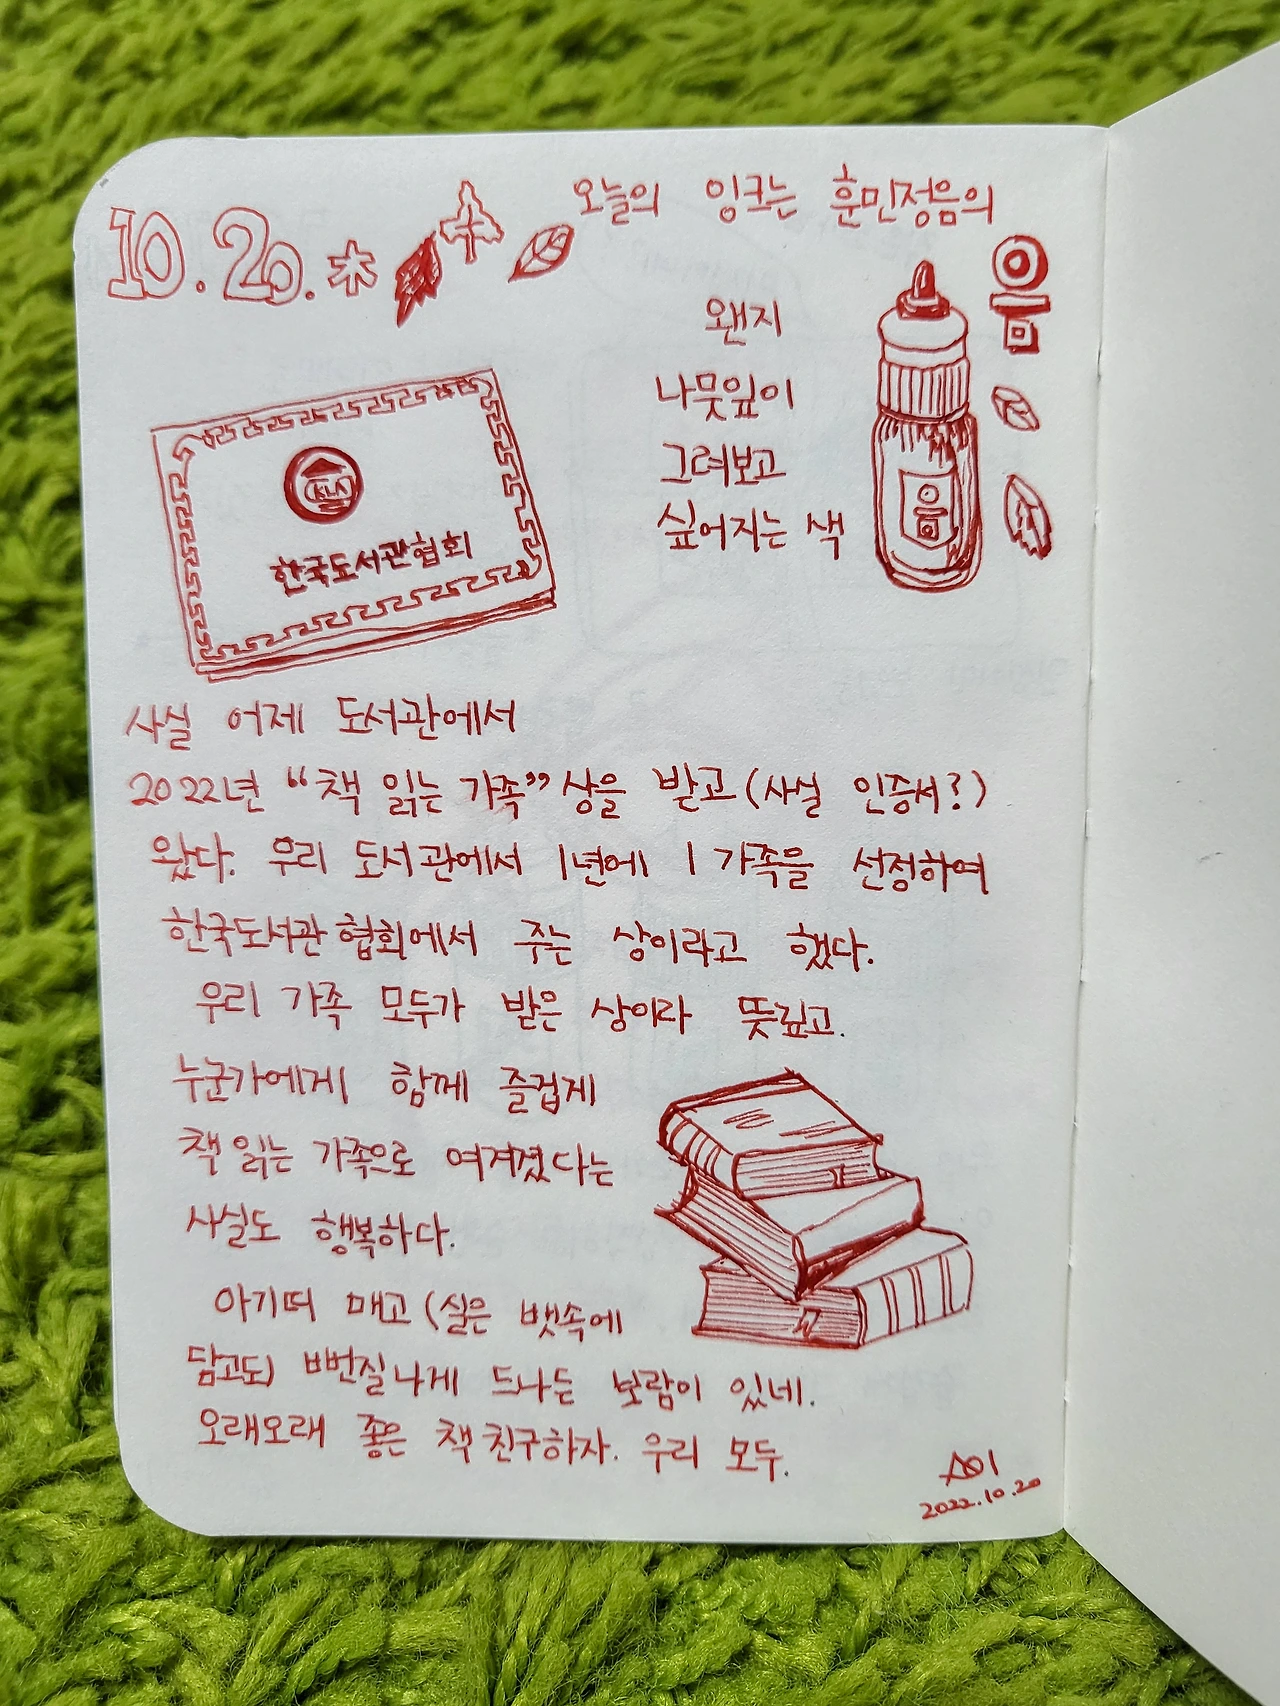 10. 20. 木
오늘의 잉크는 훈민정음의
음
왠지
나뭇잎이
그려보고
싶어지는 색
음
KLA
한국도서관협회
사실 어제 도서관에서
2022년 “책 읽는 가족” 상을 받고 (사실 인증서?)
왔다. 우리 도서관에서 1년에 1 가족을 선정하여
한국도서관협회에서 주는 상이라고 했다.
우리 가족 모두가 받은 상이라 뜻깊고.
누군가에게 함께 즐겁게
책 읽는 가족으로 여겨졌다는
사실도 행복하다.
아기띠 매고 (실은 뱃속에
담고도) 뻔질나게 드나든 보람이 있네.
오래오래 좋은 책 친구하자. 우리 모두.
2022.10.20